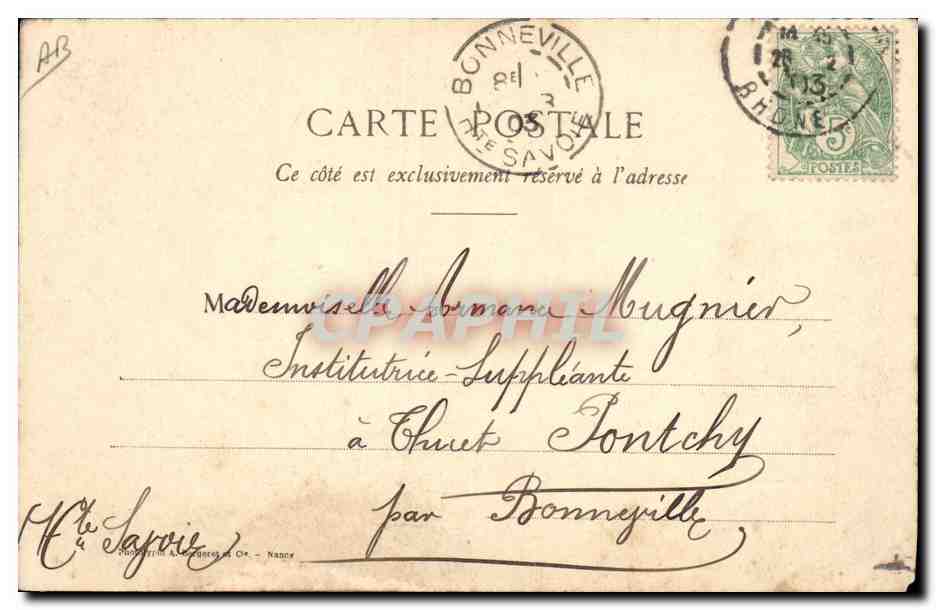 AB
BONNEVILLE
8E
3
03
HTE SAVOIE
14 45
26 2
03
RHONE
5
POSTES
CARTE POSTALE
Ce côté est exclusivement réservé à l'adresse
CPAPHIL
Mademoiselle Armane Mugnier,
Institutrice-Suppléante
à Thuet Pontchy
par Bonneville
Hte Savoie
A. Bergeret et Cie. - Nancy